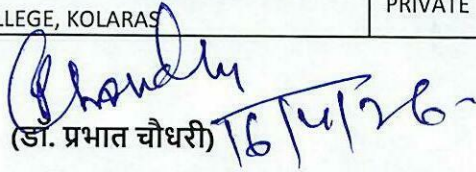 LLEGE, KOLARAS PRIVATE
(डॉ. प्रभात चौधरी) 16/4/26